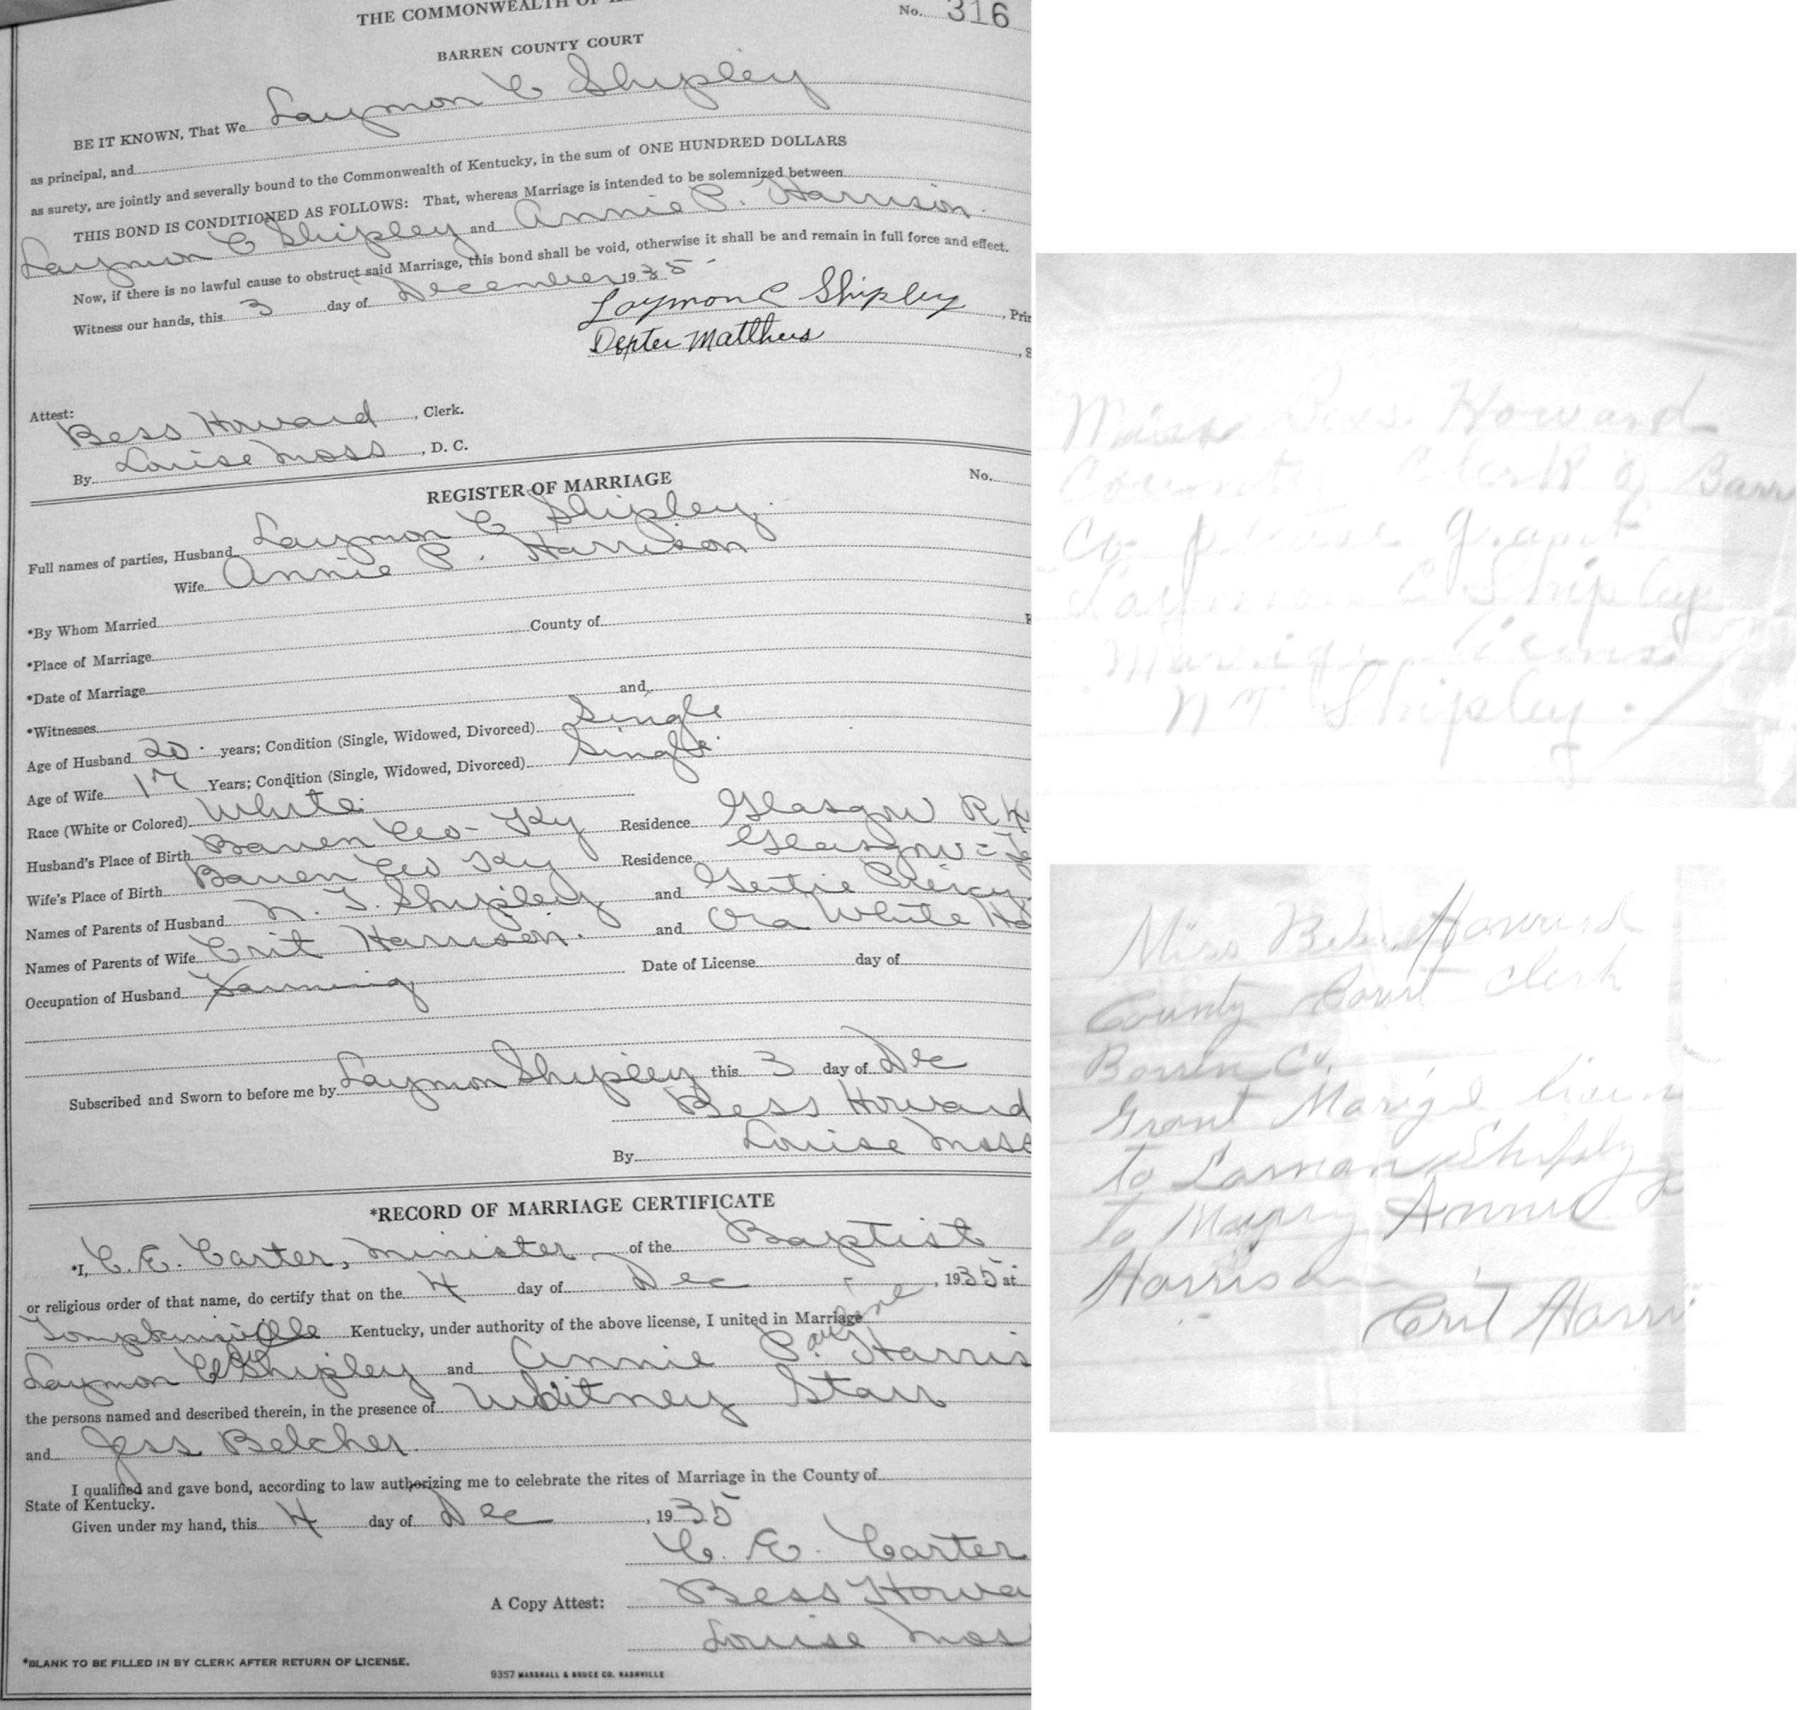 THE COMMONWEALTH OF
No. 316
BARREN COUNTY COURT
BE IT KNOWN, That We Laymon C Shipley
as principal, and
as surety, are jointly and severally bound to the Commonwealth of Kentucky, in the sum of ONE HUNDRED DOLLARS
THIS BOND IS CONDITIONED AS FOLLOWS: That, whereas Marriage is intended to be solemnized between
Laymon C Shipley and Annie P. Harrison.
Now, if there is no lawful cause to obstruct said Marriage, this bond shall be void, otherwise it shall be and remain in full force and effect.
Witness our hands, this 3 day of December 1935-
Laymon C Shipley, Prin
Dexter Matthews
Attest:
Bess Howard, Clerk.
By Louise Moss, D. C.
REGISTER OF MARRIAGE
No.
Full names of parties, Husband Laymon C Shipley.
Wife Annie P. Harrison
*By Whom Married
County of
*Place of Marriage
*Date of Marriage
*Witnesses and
Age of Husband 20. years; Condition (Single, Widowed, Divorced) Single
Age of Wife 17 Years; Condition (Single, Widowed, Divorced) Single.
Race (White or Colored) White.
Husband's Place of Birth Barren Co- Ky Residence Glasgow R
Wife's Place of Birth Barren Co Ky Residence Glasgow =
Names of Parents of Husband N. T. Shipley and Gertie Piercy
Names of Parents of Wife Crit Harrison. and Ora White Ha
Occupation of Husband Farming Date of License day of
Subscribed and Sworn to before me by Laymon Shipley this 3 day of Dec
Bess Howard
By Louise Moss
*RECORD OF MARRIAGE CERTIFICATE
*I, C. E. Carter, Minister of the Baptist
or religious order of that name, do certify that on the 4 day of Dec, 1935 at
Tompkinsville Kentucky, under authority of the above license, I united in Marriage
Laymon C Shipley and Annie Pauline Harris
the persons named and described therein, in the presence of Whitney Starr
and Jess Belcher.
I qualified and gave bond, according to law authorizing me to celebrate the rites of Marriage in the County of
State of Kentucky.
Given under my hand, this 4 day of Dec, 1935
C. E. Carter
A Copy Attest: Bess Howa
Louise Mos
*BLANK TO BE FILLED IN BY CLERK AFTER RETURN OF LICENSE.
9357 MARSHALL & BRUCE CO. NASHVILLE
Bess Howard
County Clerk of Barr
Co please grant
Laymon C Shipley
N T Shipley.
Miss Howard
County Court Clerk
Barren Co.
Grant
to Laman Shiply
to Annie
Harrison
Crit Harri